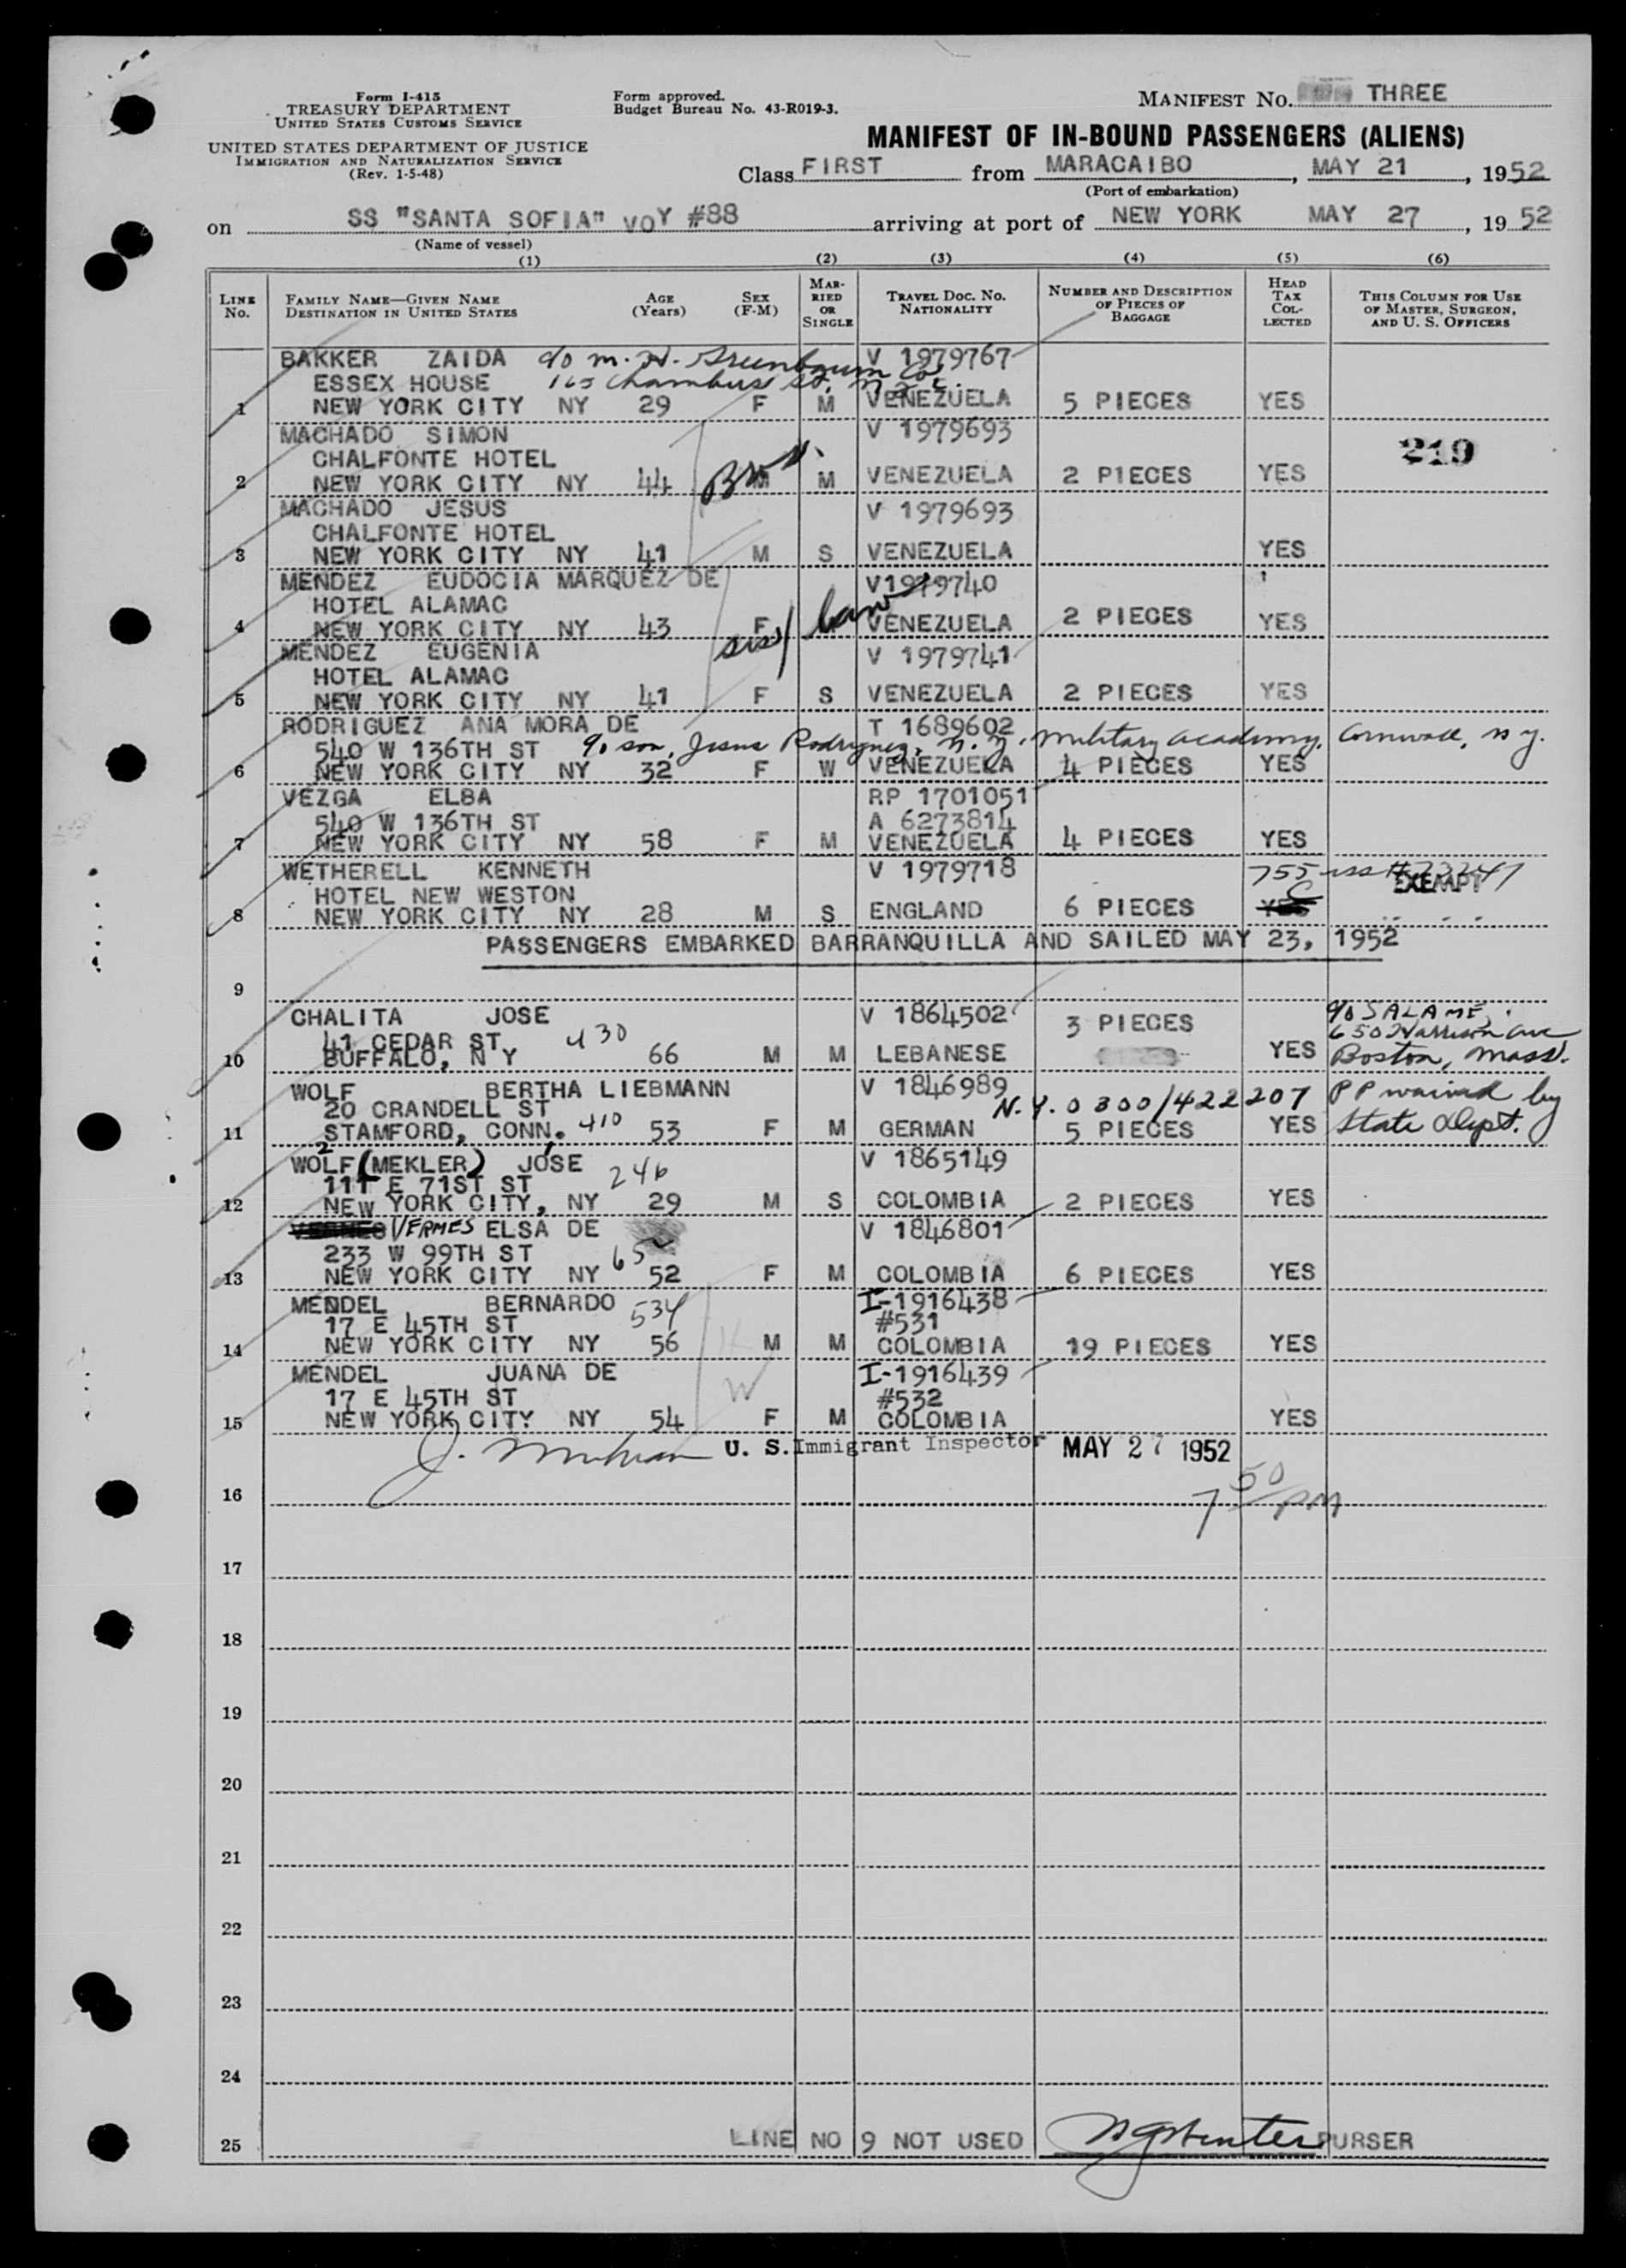 Form I-415
TREASURY DEPARTMENT
UNITED STATES CUSTOMS SERVICE
UNITED STATES DEPARTMENT OF JUSTICE
IMMIGRATION AND NATURALIZATION SERVICE
(Rev. 1-5-48)
Form approved.
Budget Bureau No. 43-R019-3.
MANIFEST No. THREE
MANIFEST OF IN-BOUND PASSENGERS (ALIENS)
Class FIRST from MARACAIBO, MAY 21, 1952
(Port of embarkation)
on SS "SANTA SOFIA" VOY #88 arriving at port of NEW YORK MAY 27, 1952
(Name of vessel)
(1) (2) (3) (4) (5) (6)
LINE No. FAMILY NAME—GIVEN NAME DESTINATION IN UNITED STATES AGE (Years) SEX (F-M) MARRIED OR SINGLE TRAVEL DOC. No. NATIONALITY NUMBER AND DESCRIPTION OF PIECES OF BAGGAGE HEAD TAX COLLECTED THIS COLUMN FOR USE OF MASTER, SURGEON, AND U. S. OFFICERS
BAKKER ZAIDA c/o M. N. Greenbaum Co. V 1979767
ESSEX HOUSE 165 Chambers St. N.Y.C.
1 NEW YORK CITY NY 29 F M VENEZUELA 5 PIECES YES
MACHADO SIMON V 1979693
CHALFONTE HOTEL 219
2 NEW YORK CITY NY 44 M M VENEZUELA 2 PIECES YES
MACHADO JESUS V 1979693
CHALFONTE HOTEL
3 NEW YORK CITY NY 41 M S VENEZUELA YES
MENDEZ EUDOCIA MARQUEZ DE V1979740
HOTEL ALAMAC
4 NEW YORK CITY NY 43 F VENEZUELA 2 PIECES YES
sis/law
MENDEZ EUGENIA V 1979741
HOTEL ALAMAC
5 NEW YORK CITY NY 41 F S VENEZUELA 2 PIECES YES
RODRIGUEZ ANA MORA DE T 1689602
540 W 136TH ST c/o son, Jesus Rodriguez, N.Y. Military Academy, Cornwall, N Y.
6 NEW YORK CITY NY 32 F W VENEZUELA 4 PIECES YES
VEZGA ELBA RP 1701051
540 W 136TH ST A 6273814
7 NEW YORK CITY NY 58 F M VENEZUELA 4 PIECES YES
WETHERELL KENNETH V 1979718 755
HOTEL NEW WESTON EXEMPT
8 NEW YORK CITY NY 28 M S ENGLAND 6 PIECES YES
PASSENGERS EMBARKED BARRANQUILLA AND SAILED MAY 23, 1952
9
CHALITA JOSE V 1864502 3 PIECES c/o SALAME,
41 CEDAR ST 430 650 Harrison Ave
10 BUFFALO, N Y 66 M M LEBANESE YES Boston, Mass.
WOLF BERTHA LIEBMANN V 1846989 PP waived by
20 CRANDELL ST N.Y. 0300/422207
11 STAMFORD, CONN. 410 53 F M GERMAN 5 PIECES YES State Dept.
WOLF (MEKLER) JOSE V 1865149
111 E 71ST ST 246
12 NEW YORK CITY, NY 29 M S COLOMBIA 2 PIECES YES
VERMES ELSA DE V 1846801
233 W 99TH ST 65
13 NEW YORK CITY NY 52 F M COLOMBIA 6 PIECES YES
MENDEL BERNARDO 534 I-1916438
17 E 45TH ST #531
14 NEW YORK CITY NY 56 M M COLOMBIA 19 PIECES YES
MENDEL JUANA DE I-1916439
17 E 45TH ST W #532
15 NEW YORK CITY NY 54 F M COLOMBIA YES
U. S. Immigrant Inspector MAY 27 1952
7 50/PM
16
17
18
19
20
21
22
23
24
25 LINE NO 9 NOT USED PURSER